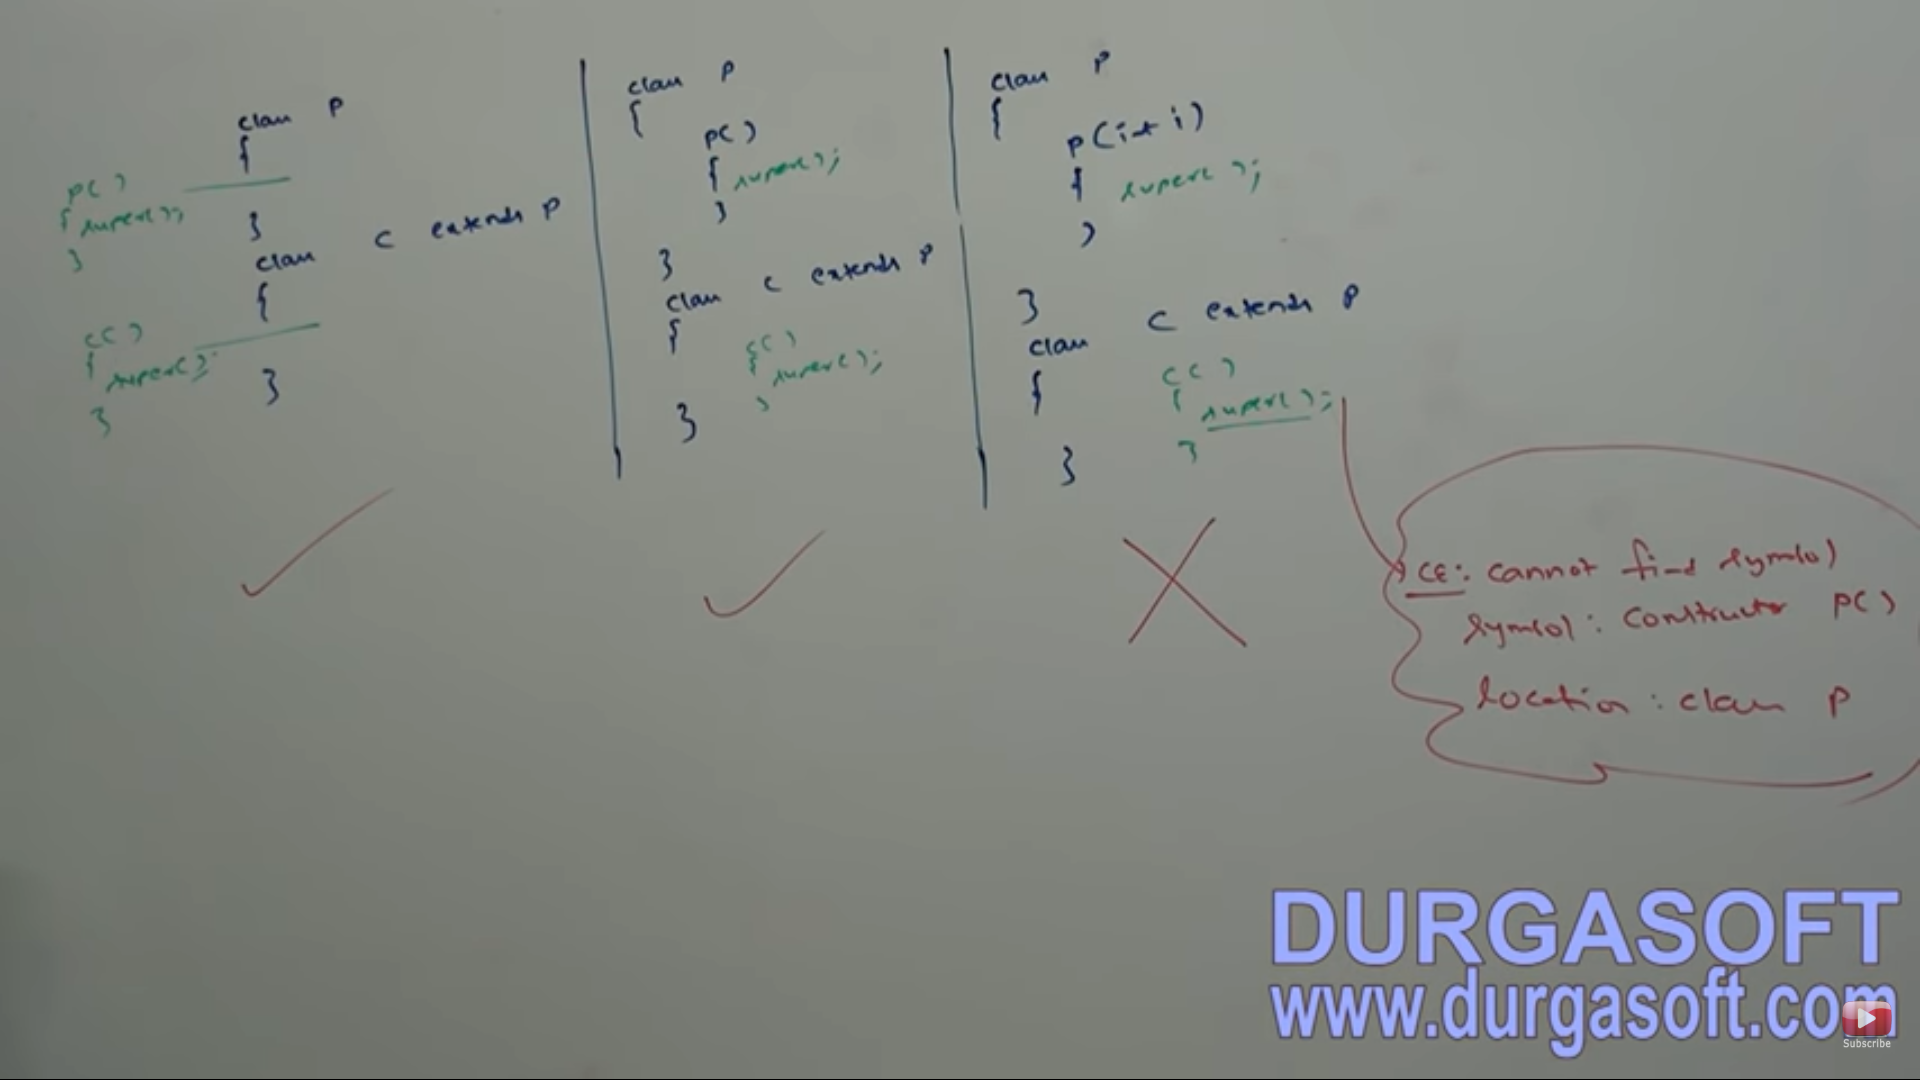 class P
{
P()
{ super();
}
}
class C extends P
{
C()
{ super();
}
}
class P
{
P()
{ super();
}
}
class C extends P
{
C()
{ super();
}
}
class P
{
P(int i)
{ super();
}
}
class C extends P
{
C()
{ super();
}
}
CE: cannot find symbol
symbol: constructor P()
location: class P
DURGASOFT
www.durgasoft.com
Subscribe